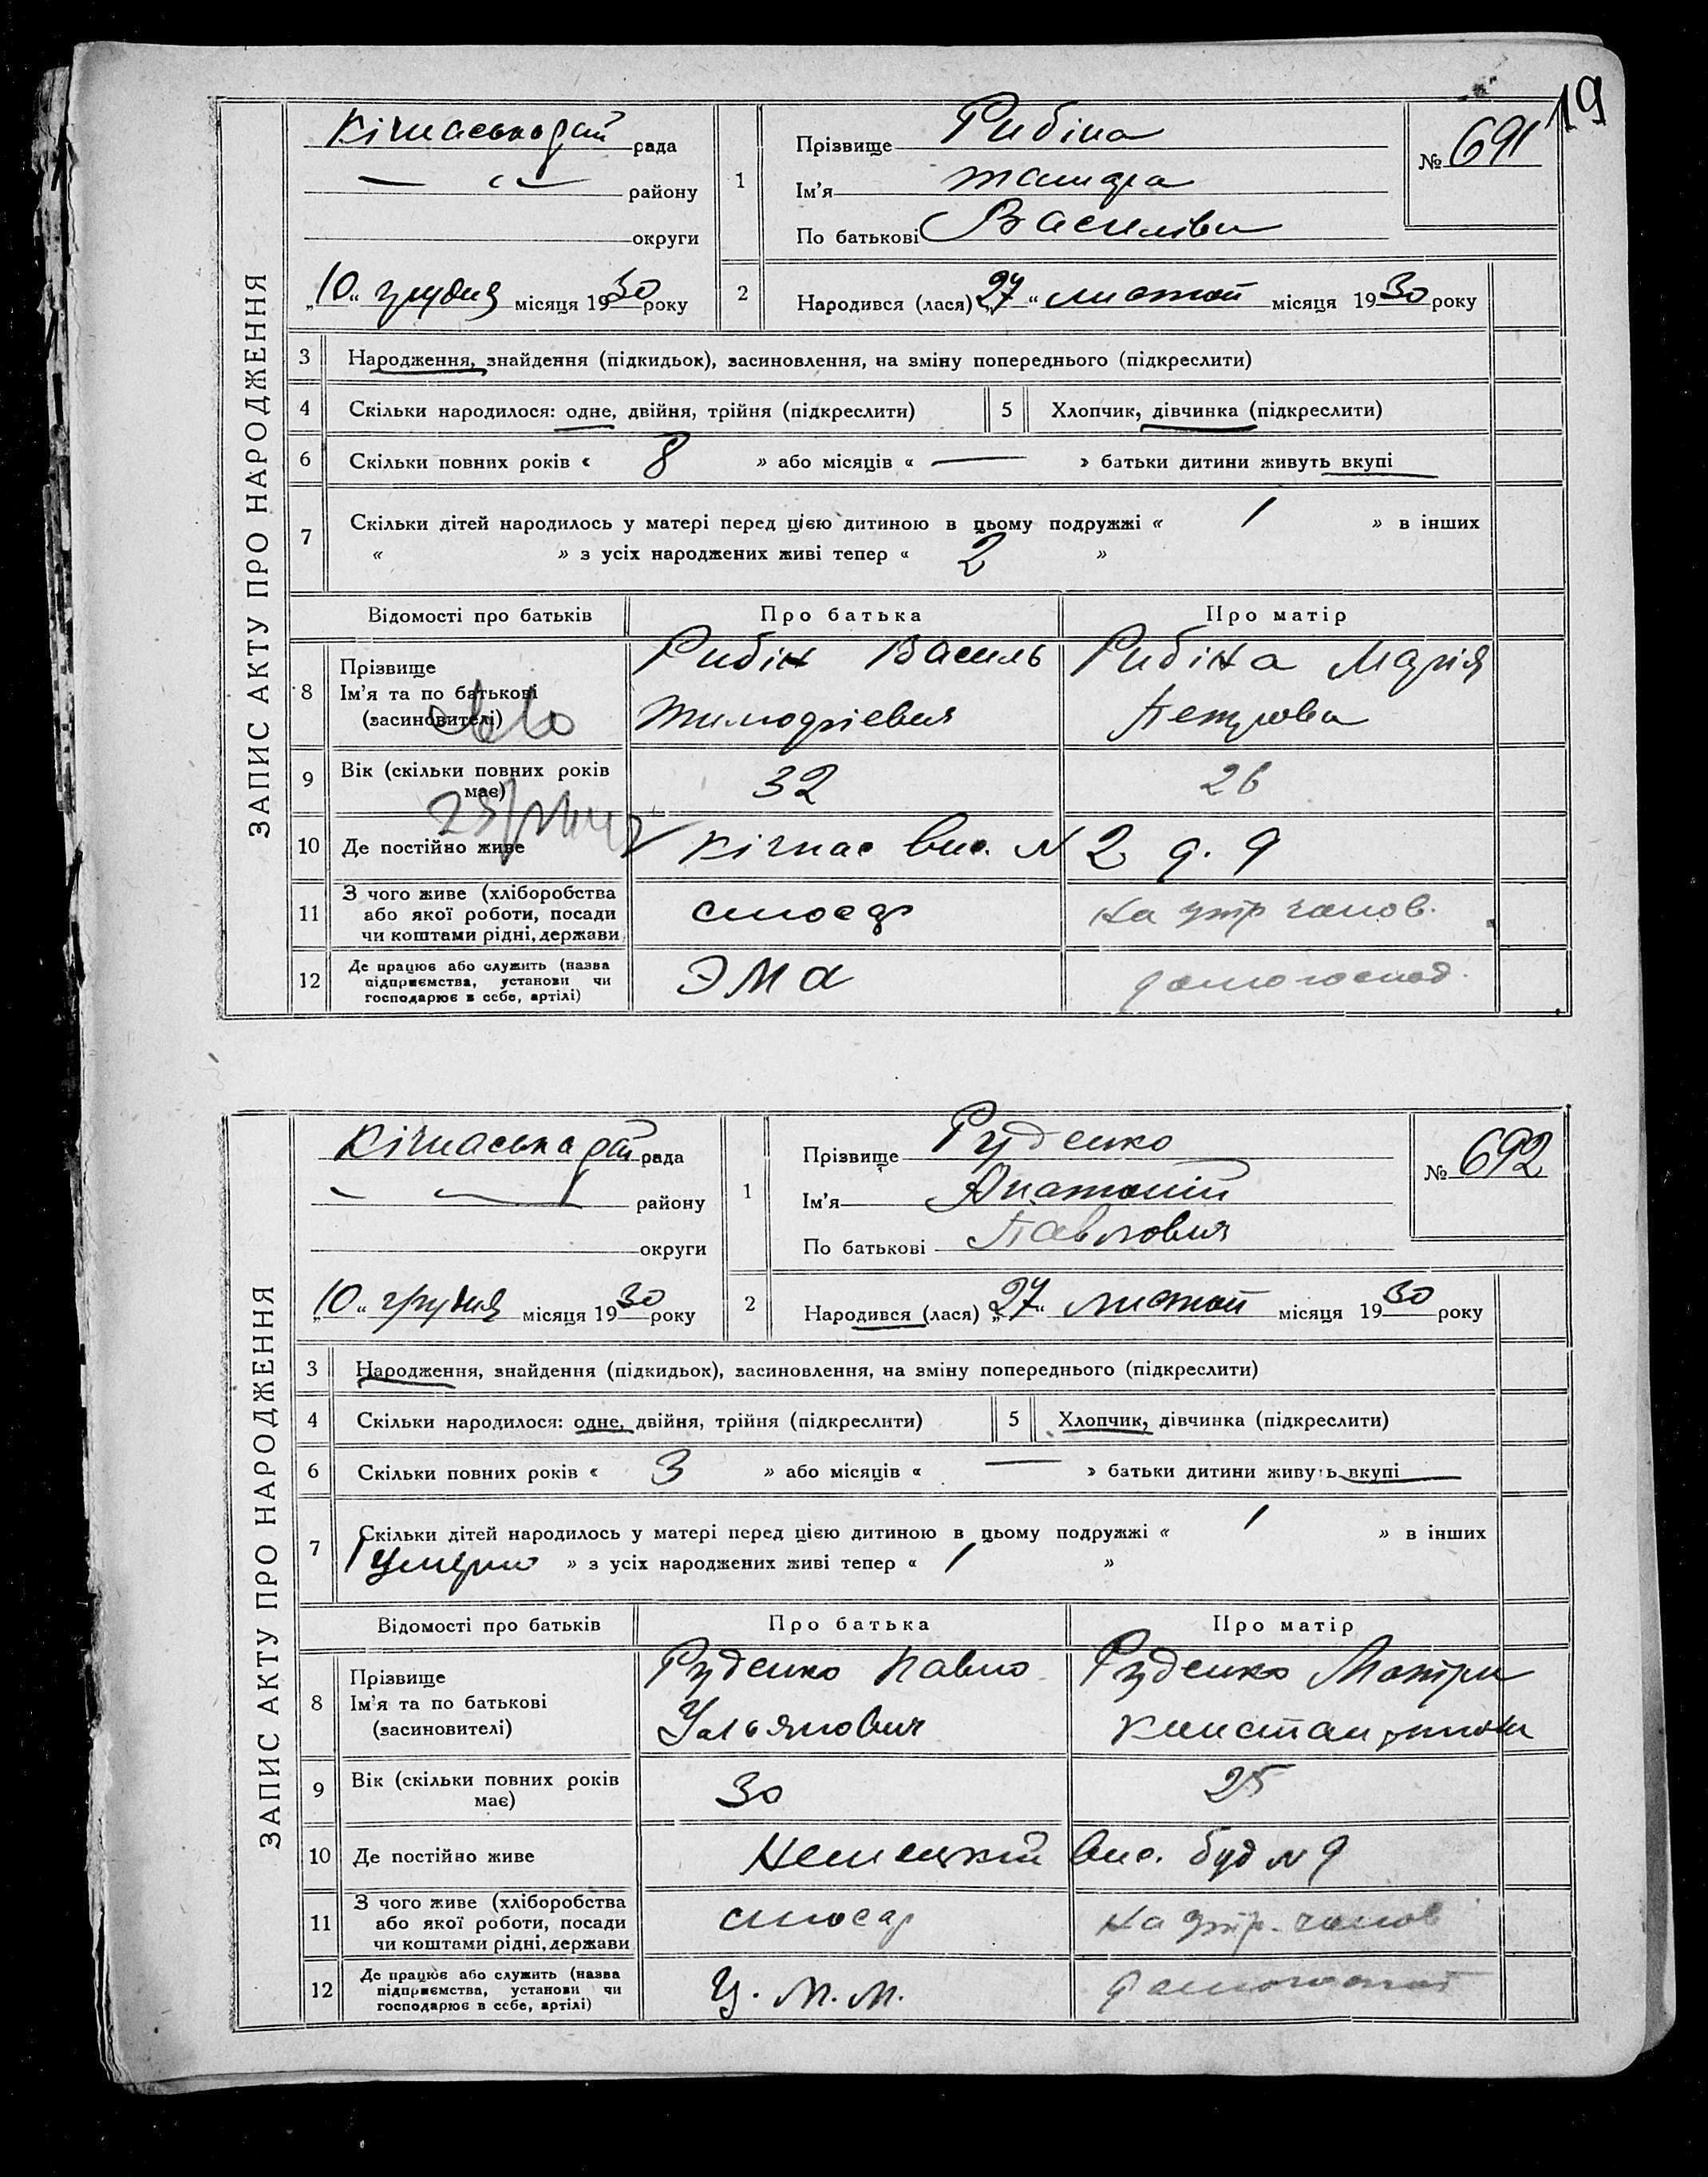 19
ЗАПИС АКТУ ПРО НАРОДЖЕННЯ
Кічкаська рай рада
району
округи
„10" грудня місяця 1930 року
1
Прізвище Рибіна
Ім'я Тамара
По батькові Василівн
№ 691
2
Народився (лася) „27" листоп місяця 1930 року
3 Народження, знайдення (підкидьок), засиновлення, на зміну попереднього (підкреслити)
4 Скільки народилося: одне, двійня, трійня (підкреслити) 5 Хлопчик, дівчинка (підкреслити)
6 Скільки повних років « 8 » або місяців « — » батьки дитини живуть вкупі
7 Скільки дітей народилось у матері перед цією дитиною в цьому подружжі « 1 » в інших
« » з усіх народжених живі тепер « 2 »
Відомості про батьків Про батька Про матір
8 Прізвище Ім'я та по батькові (засиновителі)
Рибін Василь
Рибіна Марія
Петровна
9 Вік (скільки повних років має) 32 26
10 Де постійно живе Кічкас вис. N 2 д. 9
11 З чого живе (хліборобства або якої роботи, посади чи коштами рідні, держави слюсар на утр чолов.
12 Де працює або служить (назва підприємства, установи чи господарює в себе, артілі) ЭМО домогоспод.
ЗАПИС АКТУ ПРО НАРОДЖЕННЯ
Кічкаська рай рада
району
округи
„10" грудня місяця 1930 року
1
Прізвище Руденко
Ім'я Анатолій
По батькові Павлович
№ 692
2
Народився (лася) „27" листоп місяця 1930 року
3 Народження, знайдення (підкидьок), засиновлення, на зміну попереднього (підкреслити)
4 Скільки народилося: одне, двійня, трійня (підкреслити) 5 Хлопчик, дівчинка (підкреслити)
6 Скільки повних років « 3 » або місяців « — » батьки дитини живуть вкупі
7 Скільки дітей народилось у матері перед цією дитиною в цьому подружжі « 1 » в інших
1 умерло » з усіх народжених живі тепер « 1 »
Відомості про батьків Про батька Про матір
8 Прізвище Ім'я та по батькові (засиновителі)
Руденко Павло
Ульянович
Руденко Мотря
9 Вік (скільки повних років має) 30 25
10 Де постійно живе Немецкий вис. буд N 9
11 З чого живе (хліборобства або якої роботи, посади чи коштами рідні, держави слюсар на утр. чолов
12 Де працює або служить (назва підприємства, установи чи господарює в себе, артілі) Ц. М. М. домогоспод